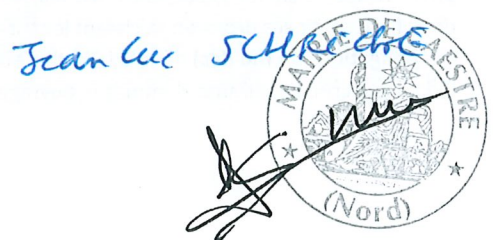 Jean Luc SCHRICKE
MAIRIE DE CAESTRE
(Nord)